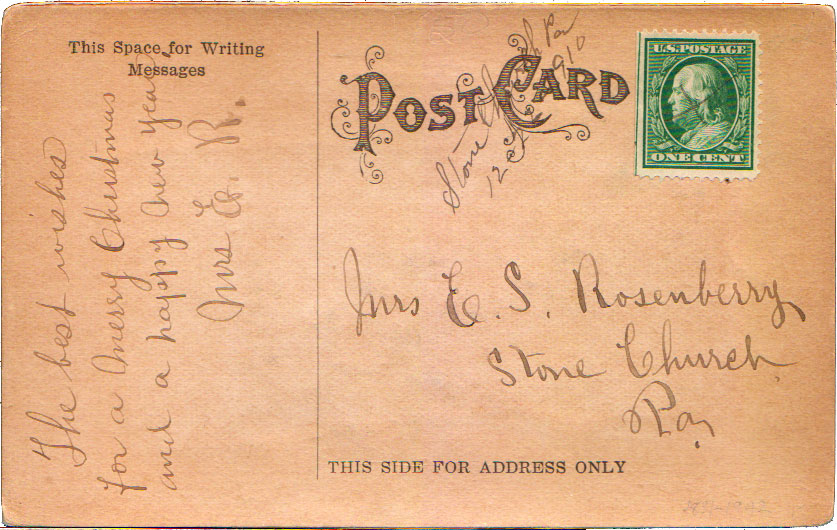 This Space for Writing
Messages
The best wishes
for a Merry Christmas
and a happy new year
Mrs E. R.
POST CARD
Stone Church Pa
12 910
U.S. POSTAGE
ONE CENT
Mrs E. S. Rosenberry
Stone Church
Pa,
THIS SIDE FOR ADDRESS ONLY